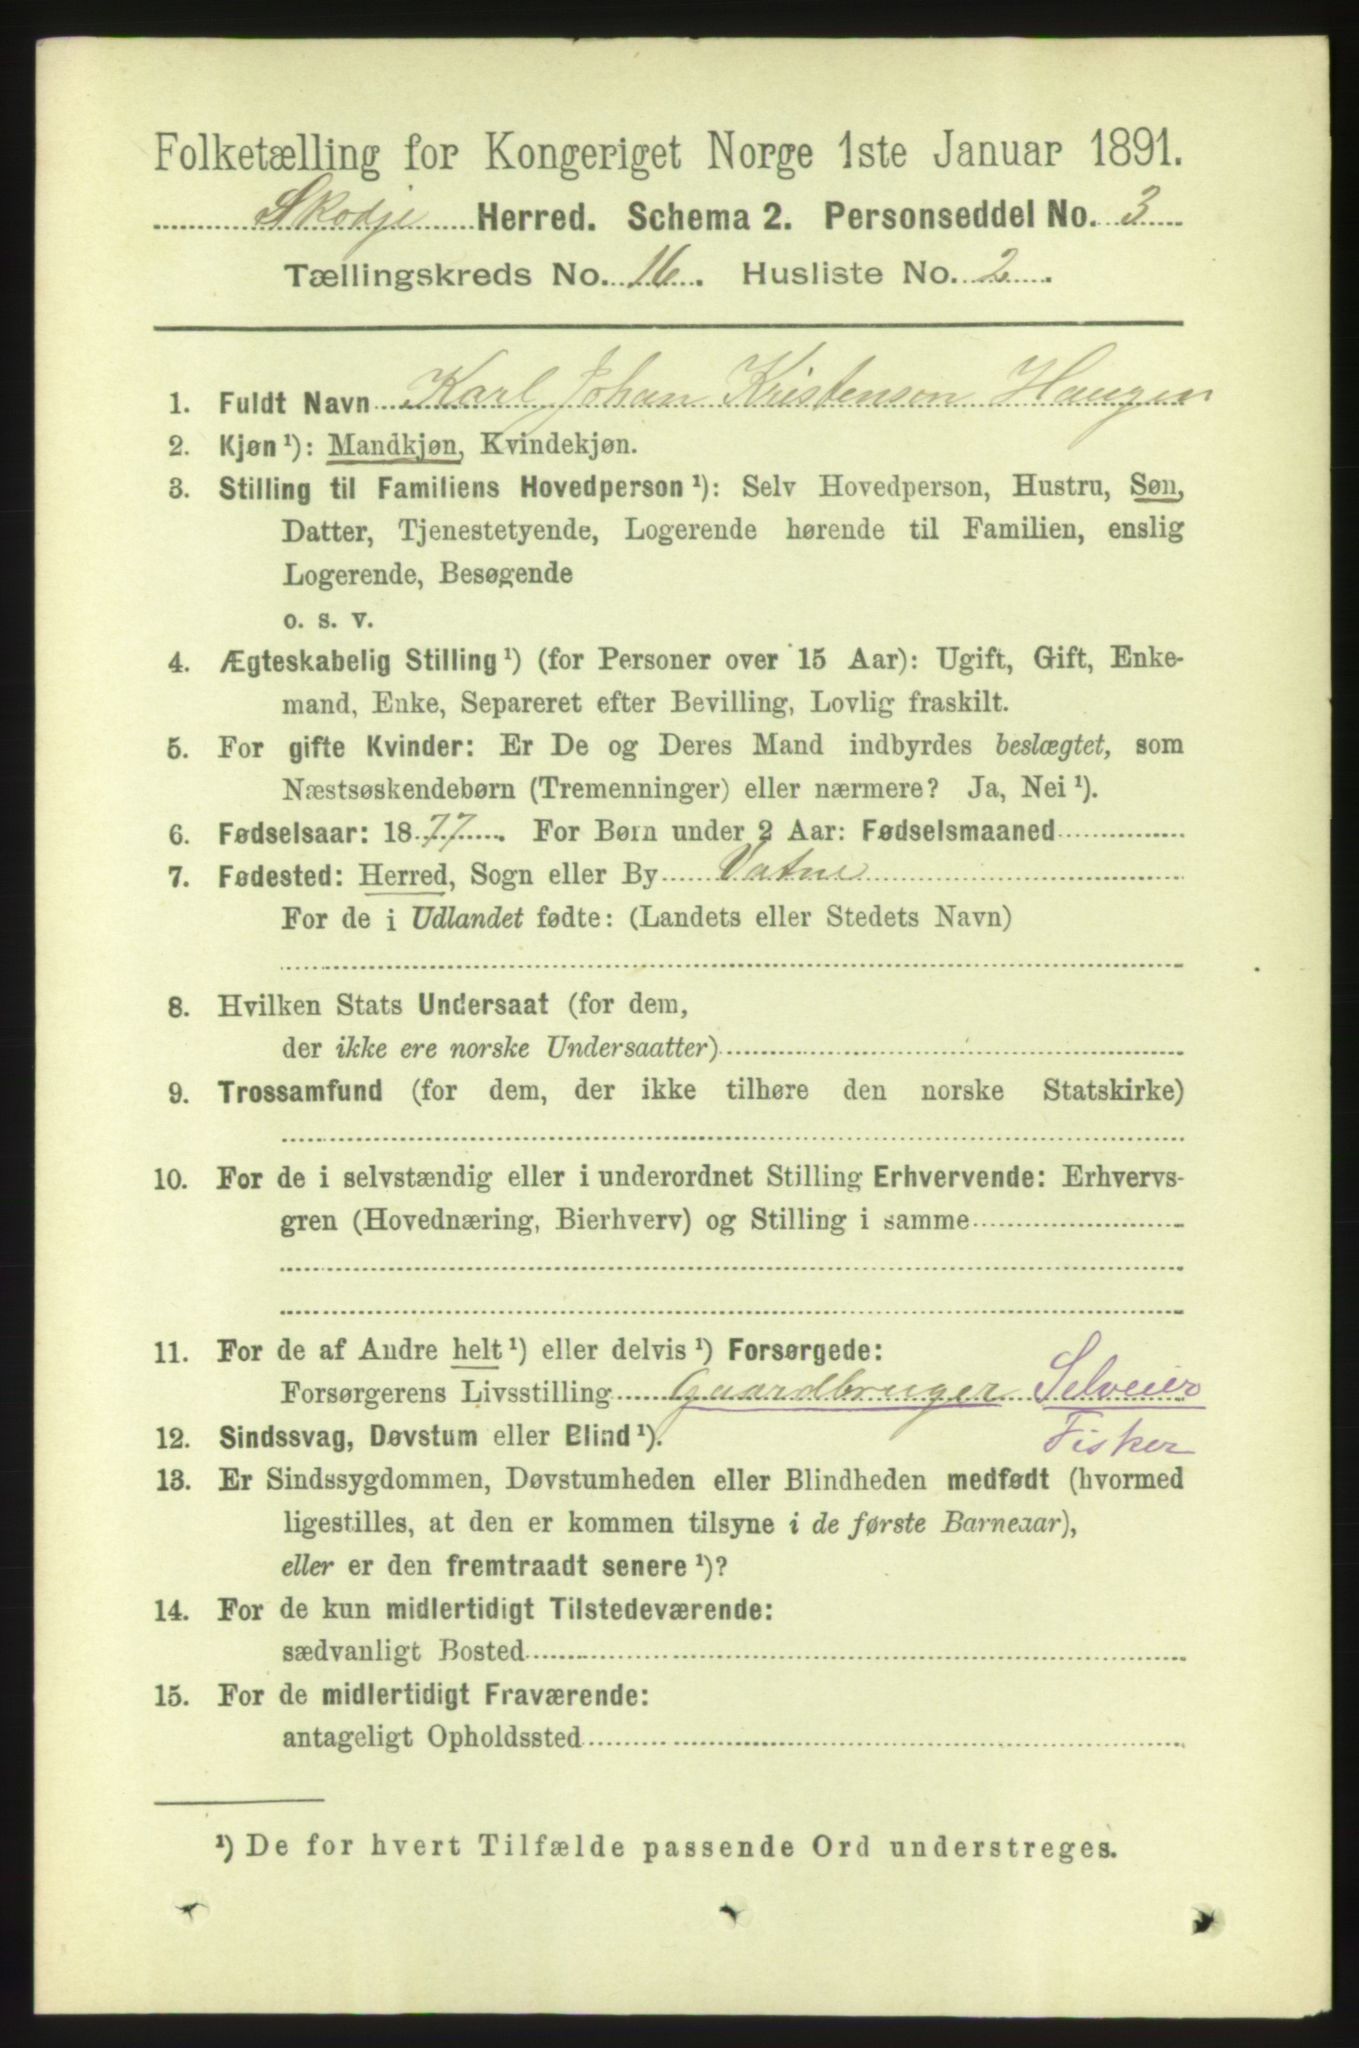 Folketælling for Kongeriget Norge 1ste Januar 1891.
Skodje Herred. Schema 2. Personseddel No. 3
Tællingskreds No. 16. Husliste No. 2.
1. Fuldt Navn Karl Johan Kristenson Haugen
2. Kjøn ¹): Mandkjøn, Kvindekjøn.
3. Stilling til Familiens Hovedperson ¹): Selv Hovedperson, Hustru, Søn,
Datter, Tjenestetyende, Logerende hørende til Familien, enslig
Logerende, Besøgende
o. s. v.
4. Ægteskabelig Stilling ¹) (for Personer over 15 Aar): Ugift, Gift, Enke-
mand, Enke, Separeret efter Bevilling, Lovlig fraskilt.
5. For gifte Kvinder: Er De og Deres Mand indbyrdes beslægtet, som
Næstsøskendebørn (Tremenninger) eller nærmere? Ja, Nei ¹).
6. Fødselsaar: 1877. For Børn under 2 Aar: Fødselsmaaned
7. Fødested: Herred, Sogn eller By Vatne
For de i Udlandet fødte: (Landets eller Stedets Navn)
8. Hvilken Stats Undersaat (for dem,
der ikke ere norske Undersaatter)
9. Trossamfund (for dem, der ikke tilhøre den norske Statskirke)
10. For de i selvstændig eller i underordnet Stilling Erhvervende: Erhvervs-
gren (Hovednæring, Bierhverv) og Stilling i samme
11. For de af Andre helt ¹) eller delvis ¹) Forsørgede:
Forsørgerens Livsstilling Gaardbruger Selveier
12. Sindssvag, Døvstum eller Blind ¹). Fisker
13. Er Sindssygdommen, Døvstumheden eller Blindheden medfødt (hvormed
ligestilles, at den er kommen tilsyne i de første Barneaar),
eller er den fremtraadt senere ¹)?
14. For de kun midlertidigt Tilstedeværende:
sædvanligt Bosted
15. For de midlertidigt Fraværende:
antageligt Opholdssted
¹) De for hvert Tilfælde passende Ord understreges.